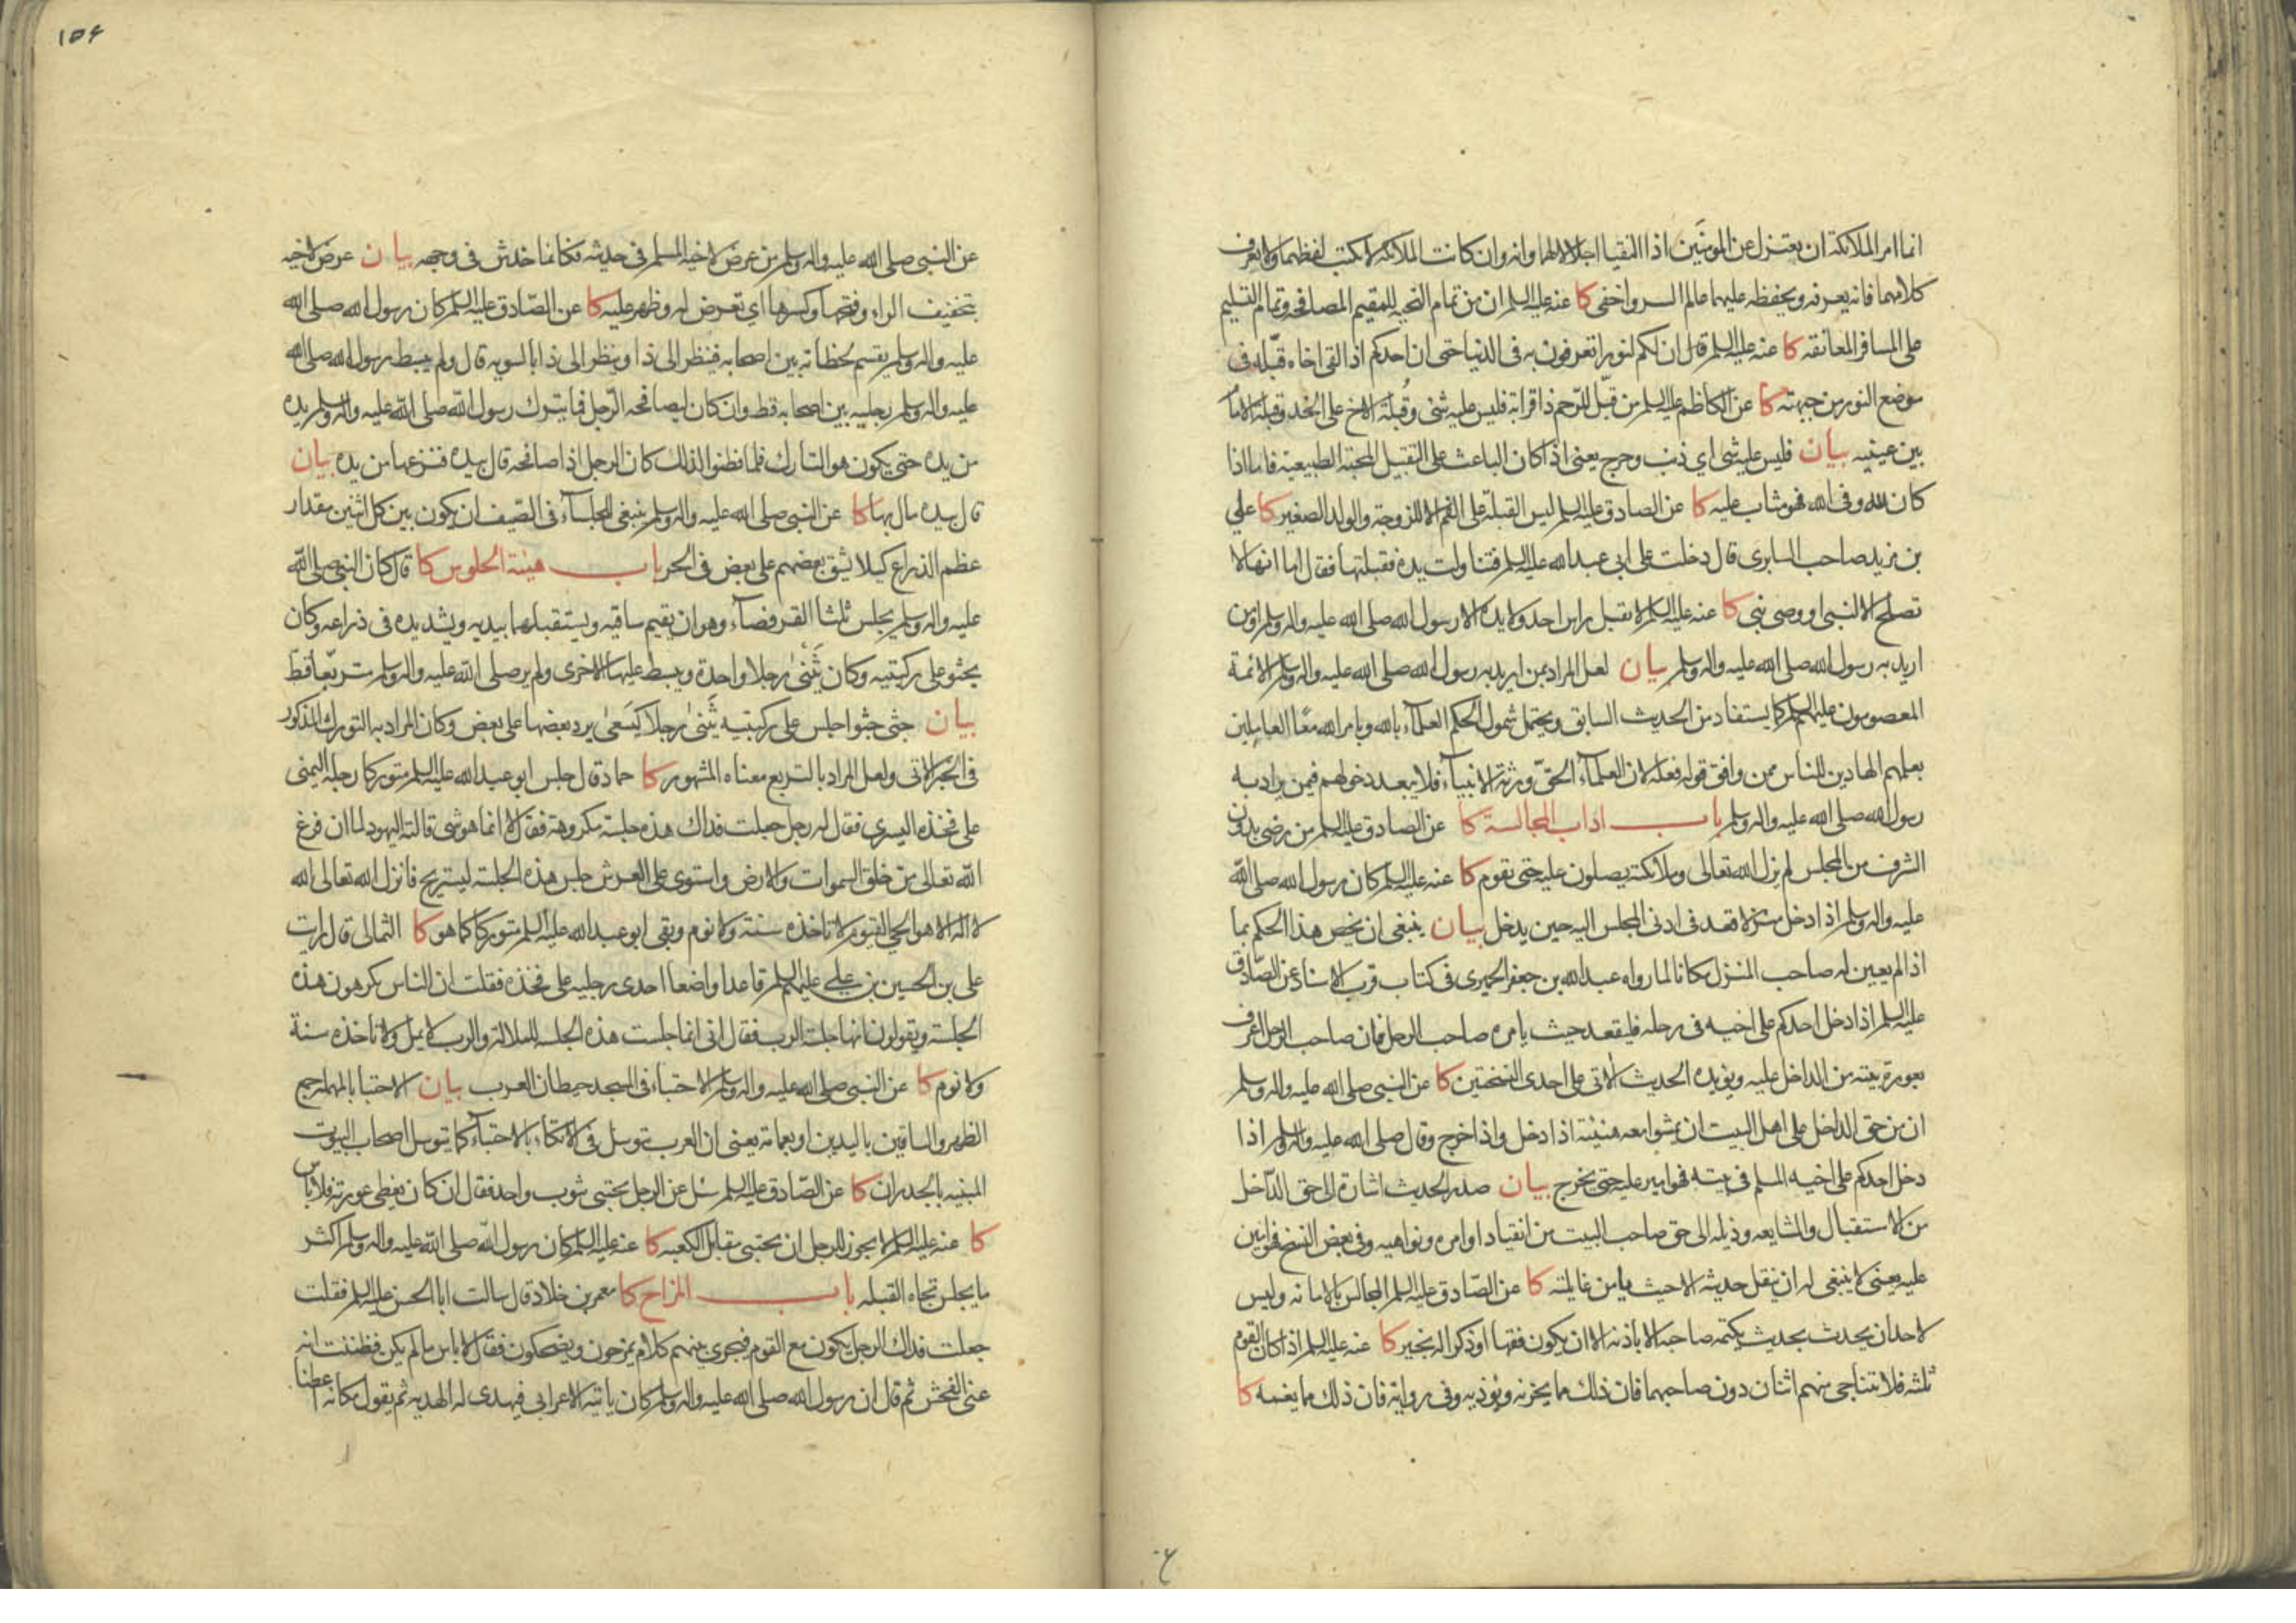 انما امر الملائكة ان يعتزل عن المومنين اذا التقيا اجلالا لهما وانه وان كانت الملائكة لا تكتب لفظهما ولا تعرف
كلامهما فانه يعرفه ويحفظه عليهما عالم السر واخفى كا عنه عليه السلم ان من تمام التحيه للمقيم المصافحه وتمام التسليم
على المسافر المعانقه كا عنه عليه السلم قال ان لكم لنورا تعرفون به فى الدنيا حتى ان احدكم اذا لقى اخاه قبّله فى
موضع النور من جبهته كا عن الكاظم عليه السلم من قبّل للرحم ذا قرابة فليس عليه شئ وقُبلة الاخ على الخد وقبلة الامام
بين عينيه بيان فليس عليه شى اي ذنب وحرج يعنى اذا كان الباعث على التقبيل المحبة الطبيعية فاما اذا
كان لله وفى الله فهو مثاب عليه كا عن الصادق عليه السلم ليس القبلة على الفم الا للزوجة والولد الصغير كا علي
بن مزيد صاحب السابرى قال دخلت على ابى عبد الله عليه السلم فتناولت يده فقبلتها فقال اما انها لا
تصلح الا لنبى او وصى نبى كا عنه عليه السلم لا تقبل راس احد ولا يده الا رسول الله صلى الله عليه واله وسلم او من
اريد به رسول الله صلى الله عليه واله وسلم بيان لعل المراد بمن اريد به رسول الله صلى الله عليه واله وسلم الائمة
المعصومون عليهم السلم كما يستفاد من الحديث السابق ويحتمل شمول الحكم العلماء بالله وبامر الله معًا العاملين
بعلمهم الهادين للناس ممن وافق قوله فعله لان العلماء الحقّ ورثة الانبياء فلا يبعد دخولهم فيمن يراد به
رسول الله صلى الله عليه واله وسلم باب اداب المجالسة كا عن الصادق عليه السلم من رضى بدون
الشرف من المجلس لم يزل الله تعالى وملائكته يصلون عليه حتى يقوم كا عنه عليه السلم كان رسول الله صلى الله
عليه واله وسلم اذا دخل منزلا قعد فى ادنى المجلس اليه حين يدخل بيان ينبغى ان يخص هذا الحكم بما
اذا لم يعين له صاحب المنزل مكانا لما رواه عبد الله بن جعفر الحميرى فى كتاب قرب الاسناد عن الصّادق
عليه السلم اذا دخل احدكم على اخيه فى رحله فليقعد حيث يامره صاحب الرحل فان صاحب الرحل اعرف
بعورة بيته من الداخل عليه ويؤيده الحديث الاتى على احدى النسختين كا عن النبى صلى الله عليه واله وسلم
ان من حق الداخل على اهل البيت ان يمشوا معه هنيئة اذا دخل واذا خرج وقال صلى الله عليه واله وسلم اذا
دخل احدكم على اخيه المسلم فى بيته فهو امير عليه حتى يخرج بيان صدر الحديث اشارة الى حق الدّاخل
من الاستقبال والمشايعه وذيله الى حق صاحب البيت من انقياد اوامره ونواهيه وفى بعض النسخ فهو امين
عليه يعنى لا ينبغى له ان ينقل حديثه الا حيث يامن غايلته كا عن الصّادق عليه السلم المجالس بالامانه وليس
لاحد ان يحدث بحديث يكتمه صاحبه الا باذنه الا ان يكون فقها او ذكرا له بخير كا عنه عليه السلم اذا كان القوم
ثلثه فلا يتناجى منهم اثنان دون صاحبهما فان ذلك مما يحزنه ويؤذيه وفى رواية فان ذلك مما يغمه كا
١٥٤
عن النبى صلى الله عليه واله وسلم من عرض لاخيه المسلم فى حديثه فكانما خدش فى وجهه بيان عرض لاخيه
بتخفيف الراء وفتحها وكسرها اي تعرض له وظهر عليه كا عن الصّادق عليه السلم كان رسول الله صلى الله
عليه واله وسلم يقسم لحظاته بين اصحابه فينظر الى ذا وينظر الى ذا بالسويه قال ولم يبسط رسول الله صلى الله
عليه واله وسلم رجليه بين اصحابه قط وان كان ليصافحه الرّجل فما يترك رسول الله صلى الله عليه واله وسلم يده
من يده حتى يكون هو التارك فلما فطنوا لذلك كان الرجل اذا صافحه قال بيده فنزعها من يده بيان
قال بيده مال بها كا عن النبى صلى الله عليه واله وسلم ينبغى للجلساء فى الصّيف ان يكون بين كل اثنين مقدار
عظم الذراع كيلا يشق بعضهم على بعض فى الحر باب هيئة الجلوس كا قال كان النبى صلى الله
عليه واله وسلم يجلس ثلثا القرفصاء وهو ان يقيم ساقيه ويستقبلهما بيديه ويشد يده فى ذراعه وكان
يجثو على ركبتيه وكان يَثْنى رجلا واحدة ويبسط عليها الاخرى ولم ير صلى الله عليه واله وسلم متربّعا قط
بيان جثى جثوا جلس على ركبتيه يثنى رجلا كيَسعى يرد بعضها على بعض وكان المراد به التورك المذكور
فى الخبر الاتى ولعل المراد بالتربع معناه المشهور كا حماد قال جلس ابو عبد الله عليه السلم متوركا رجله اليمنى
على فخذه اليسرى فقال له رجل جعلت فداك هذه جلسة مكروهة فقال لا انما هو شى قالته اليهود لما ان فرغ
الله تعالى من خلق السموات والارض واستوى على العرش جلس هذه الجلسة ليستريح فانزل الله تعالى الله
لا اله الا هو الحي القيوم لا تاخذه سنة ولا نوم وبقى ابو عبد الله عليه السلم متوركا كما هو كا الثمالى قال رايت
على بن الحسين بن علي عليهم السلم قاعدا واضعا احدى رجليه على فخذه فقلت ان الناس يكرهون هذه
الجلسة ويقولون انها جلسة الرب فقال انى انما جلست هذه الجلسه للملالة والرب لا يمل ولا تاخذه سنة
ولا نوم كا عن النبى صلى الله عليه واله وسلم الاحتباء فى المسجد حيطان العرب بيان الاحتبا بالمهملة جمع
الظهر والساقين باليدين او بعمامة يعنى ان العرب تتوسل فى الاتكاء بالاحتباء كما يتوسل اصحاب البيوت
المبنيه بالجدران كا عن الصّادق عليه السلم سئل عن الرجل يحتبى بثوب واحد فقال ان كان يغطى عورته فلا باس
كا عنه عليه السلم لا يجوز للرجل ان يحتبى مقابل الكعبه كا عنه عليه السلم كان رسول الله صلى الله عليه واله وسلم اكثر
ما يجلس تجاه القبله باب المزاح كا معمر بن خلاد قال سالت ابا الحسن عليه السلم فقلت
جعلت فداك الرجل يكون مع القوم فيجرى بينهم كلام يمزحون ويضحكون فقال لا باس ما لم يكن فظننت انه
عنى الفحش ثم قال ان رسول الله صلى الله عليه واله وسلم كان ياتيه الاعرابى فيهدى له الهديه ثم يقول مكانه اعطنا